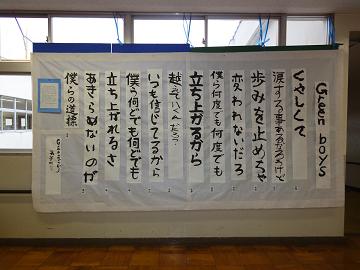 Green boys
くやしくて
涙する事あるだろうけど
歩みを止めちゃ
変われないだろ
僕ら何度でも何度でも
立ち上がるから
越えていくんだって
いつも信じてるから
僕ら何どでも何どでも
立ち上がれるさ
あきらめないのが
僕らの道標